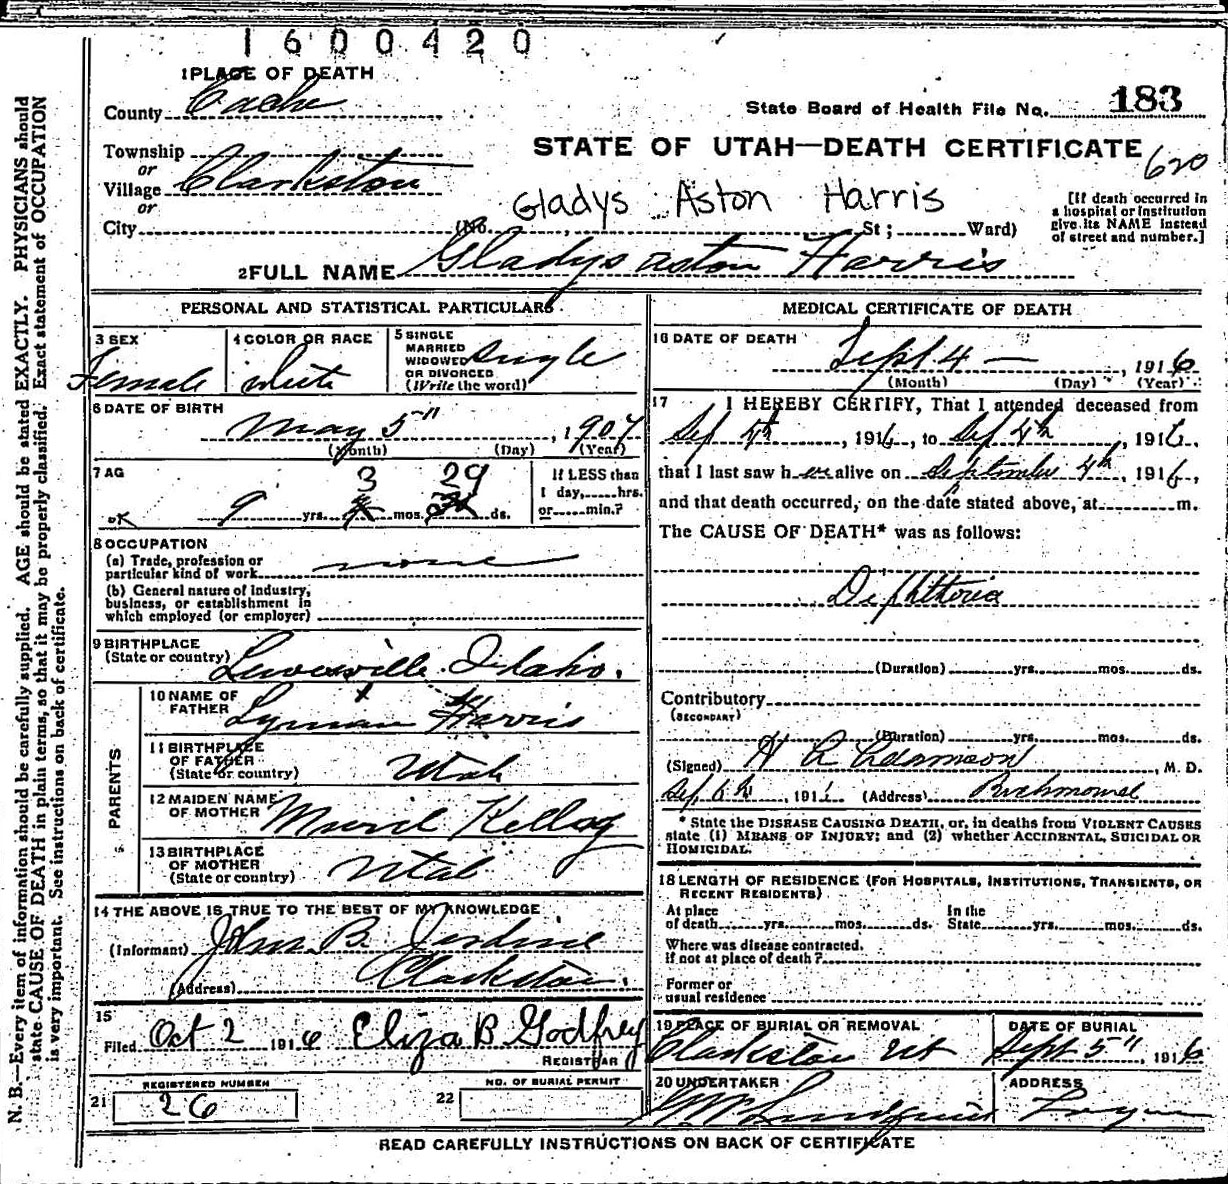 1600420
1 PLACE OF DEATH
County Cache
State Board of Health File No. 183
Township
or
Village Clarkston
or
City
STATE OF UTAH—DEATH CERTIFICATE
620
Gladys Aston Harris
(No. , St; Ward)
[If death occurred in
a hospital or institution
give its NAME instead
of street and number.]
2 FULL NAME Gladys Aston Harris
PERSONAL AND STATISTICAL PARTICULARS
3 SEX
Female
4 COLOR OR RACE
White
5 SINGLE
MARRIED
WIDOWED
OR DIVORCED
(Write the word)
Single
6 DATE OF BIRTH
May 5", 1907
(Month) (Day) (Year)
7 AG
3 29
ok 9 yrs. mos. ds.
If LESS than
1 day, hrs.
or min.?
8 OCCUPATION
(a) Trade, profession or
particular kind of work none
(b) General nature of industry,
business, or establishment in
which employed (or employer)
9 BIRTHPLACE
(State or country) Lewisville Idaho.
PARENTS
10 NAME OF
FATHER Lyman Harris
11 BIRTHPLACE
OF FATHER
(State or country) Utah
12 MAIDEN NAME
OF MOTHER Kellog
13 BIRTHPLACE
OF MOTHER
(State or country) Utah
14 THE ABOVE IS TRUE TO THE BEST OF MY KNOWLEDGE
(Informant) John B. Jardine
(Address) Clarkston.
15
Filed Oct 2 1916 Eliza B Godfrey
REGISTRAR
REGISTERED NUMBER
21 26
NO. OF BURIAL PERMIT
22
MEDICAL CERTIFICATE OF DEATH
16 DATE OF DEATH
Sept 4 — , 1916
(Month) (Day) (Year)
17 I HEREBY CERTIFY, That I attended deceased from
Sep 4th , 1916, to Sep 4th , 1916,
that I last saw her alive on September 4th, 1916,
and that death occurred, on the date stated above, at m.
The CAUSE OF DEATH* was as follows:
Diphtheria
(Duration) yrs. mos. ds.
Contributory
(SECONDARY)
(Duration) yrs. mos. ds.
(Signed) H A Adamson , M. D.
Sep. 6th, 1916 (Address) Richmond
* State the DISEASE CAUSING DEATH, or, in deaths from VIOLENT CAUSES
state (1) MEANS OF INJURY; and (2) whether ACCIDENTAL, SUICIDAL OR
HOMICIDAL.
18 LENGTH OF RESIDENCE (FOR HOSPITALS, INSTITUTIONS, TRANSIENTS, OR
RECENT RESIDENTS)
At place
of death yrs. mos. ds.
In the
State yrs. mos. ds.
Where was disease contracted.
If not at place of death?
Former or
usual residence
19 PLACE OF BURIAL OR REMOVAL
Clarkston Ut
DATE OF BURIAL
Sept 5", 1916
20 UNDERTAKER
Lundquist
ADDRESS
Logan
READ CAREFULLY INSTRUCTIONS ON BACK OF CERTIFICATE
N. B.—Every item of information should be carefully supplied. AGE should be stated EXACTLY. PHYSICIANS should
state CAUSE OF DEATH in plain terms, so that it may be properly classified. Exact statement of OCCUPATION
is very important. See instructions on back of certificate.